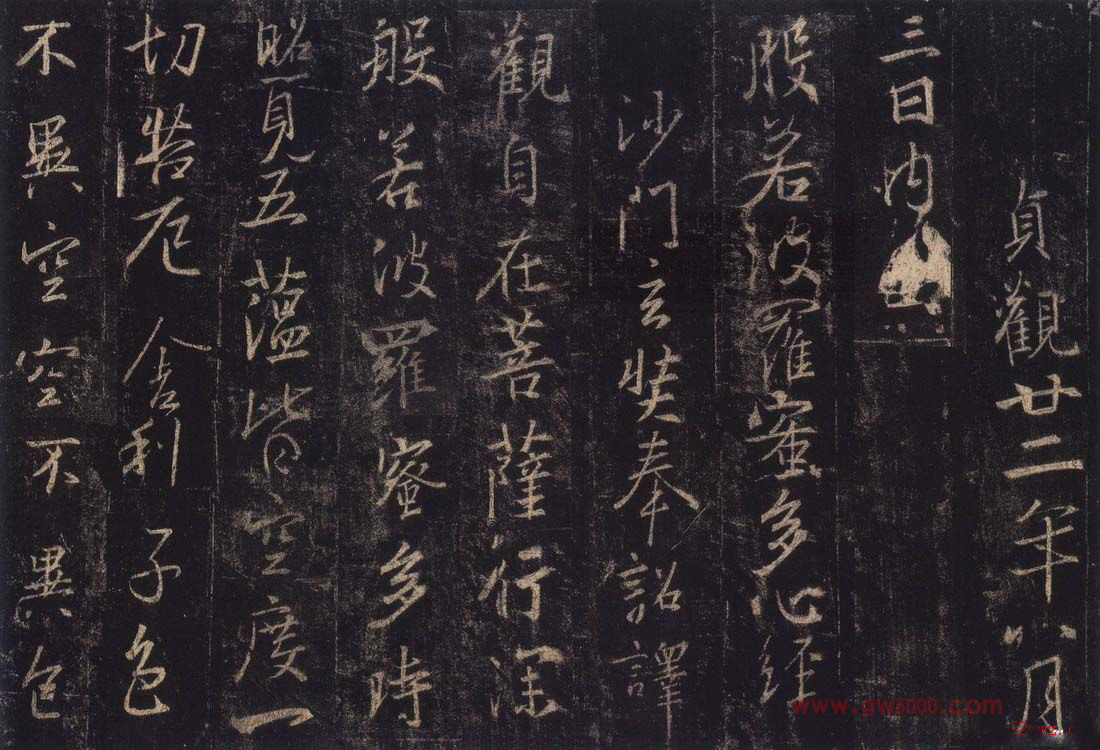 貞觀廿二年八月
三日內出
般若波羅蜜多心經
沙門玄奘奉詔譯
觀自在菩薩行深
般若波羅蜜多時
照見五蘊皆空度一
切苦厄舍利子色
不異空空不異色
www.gw5000.com